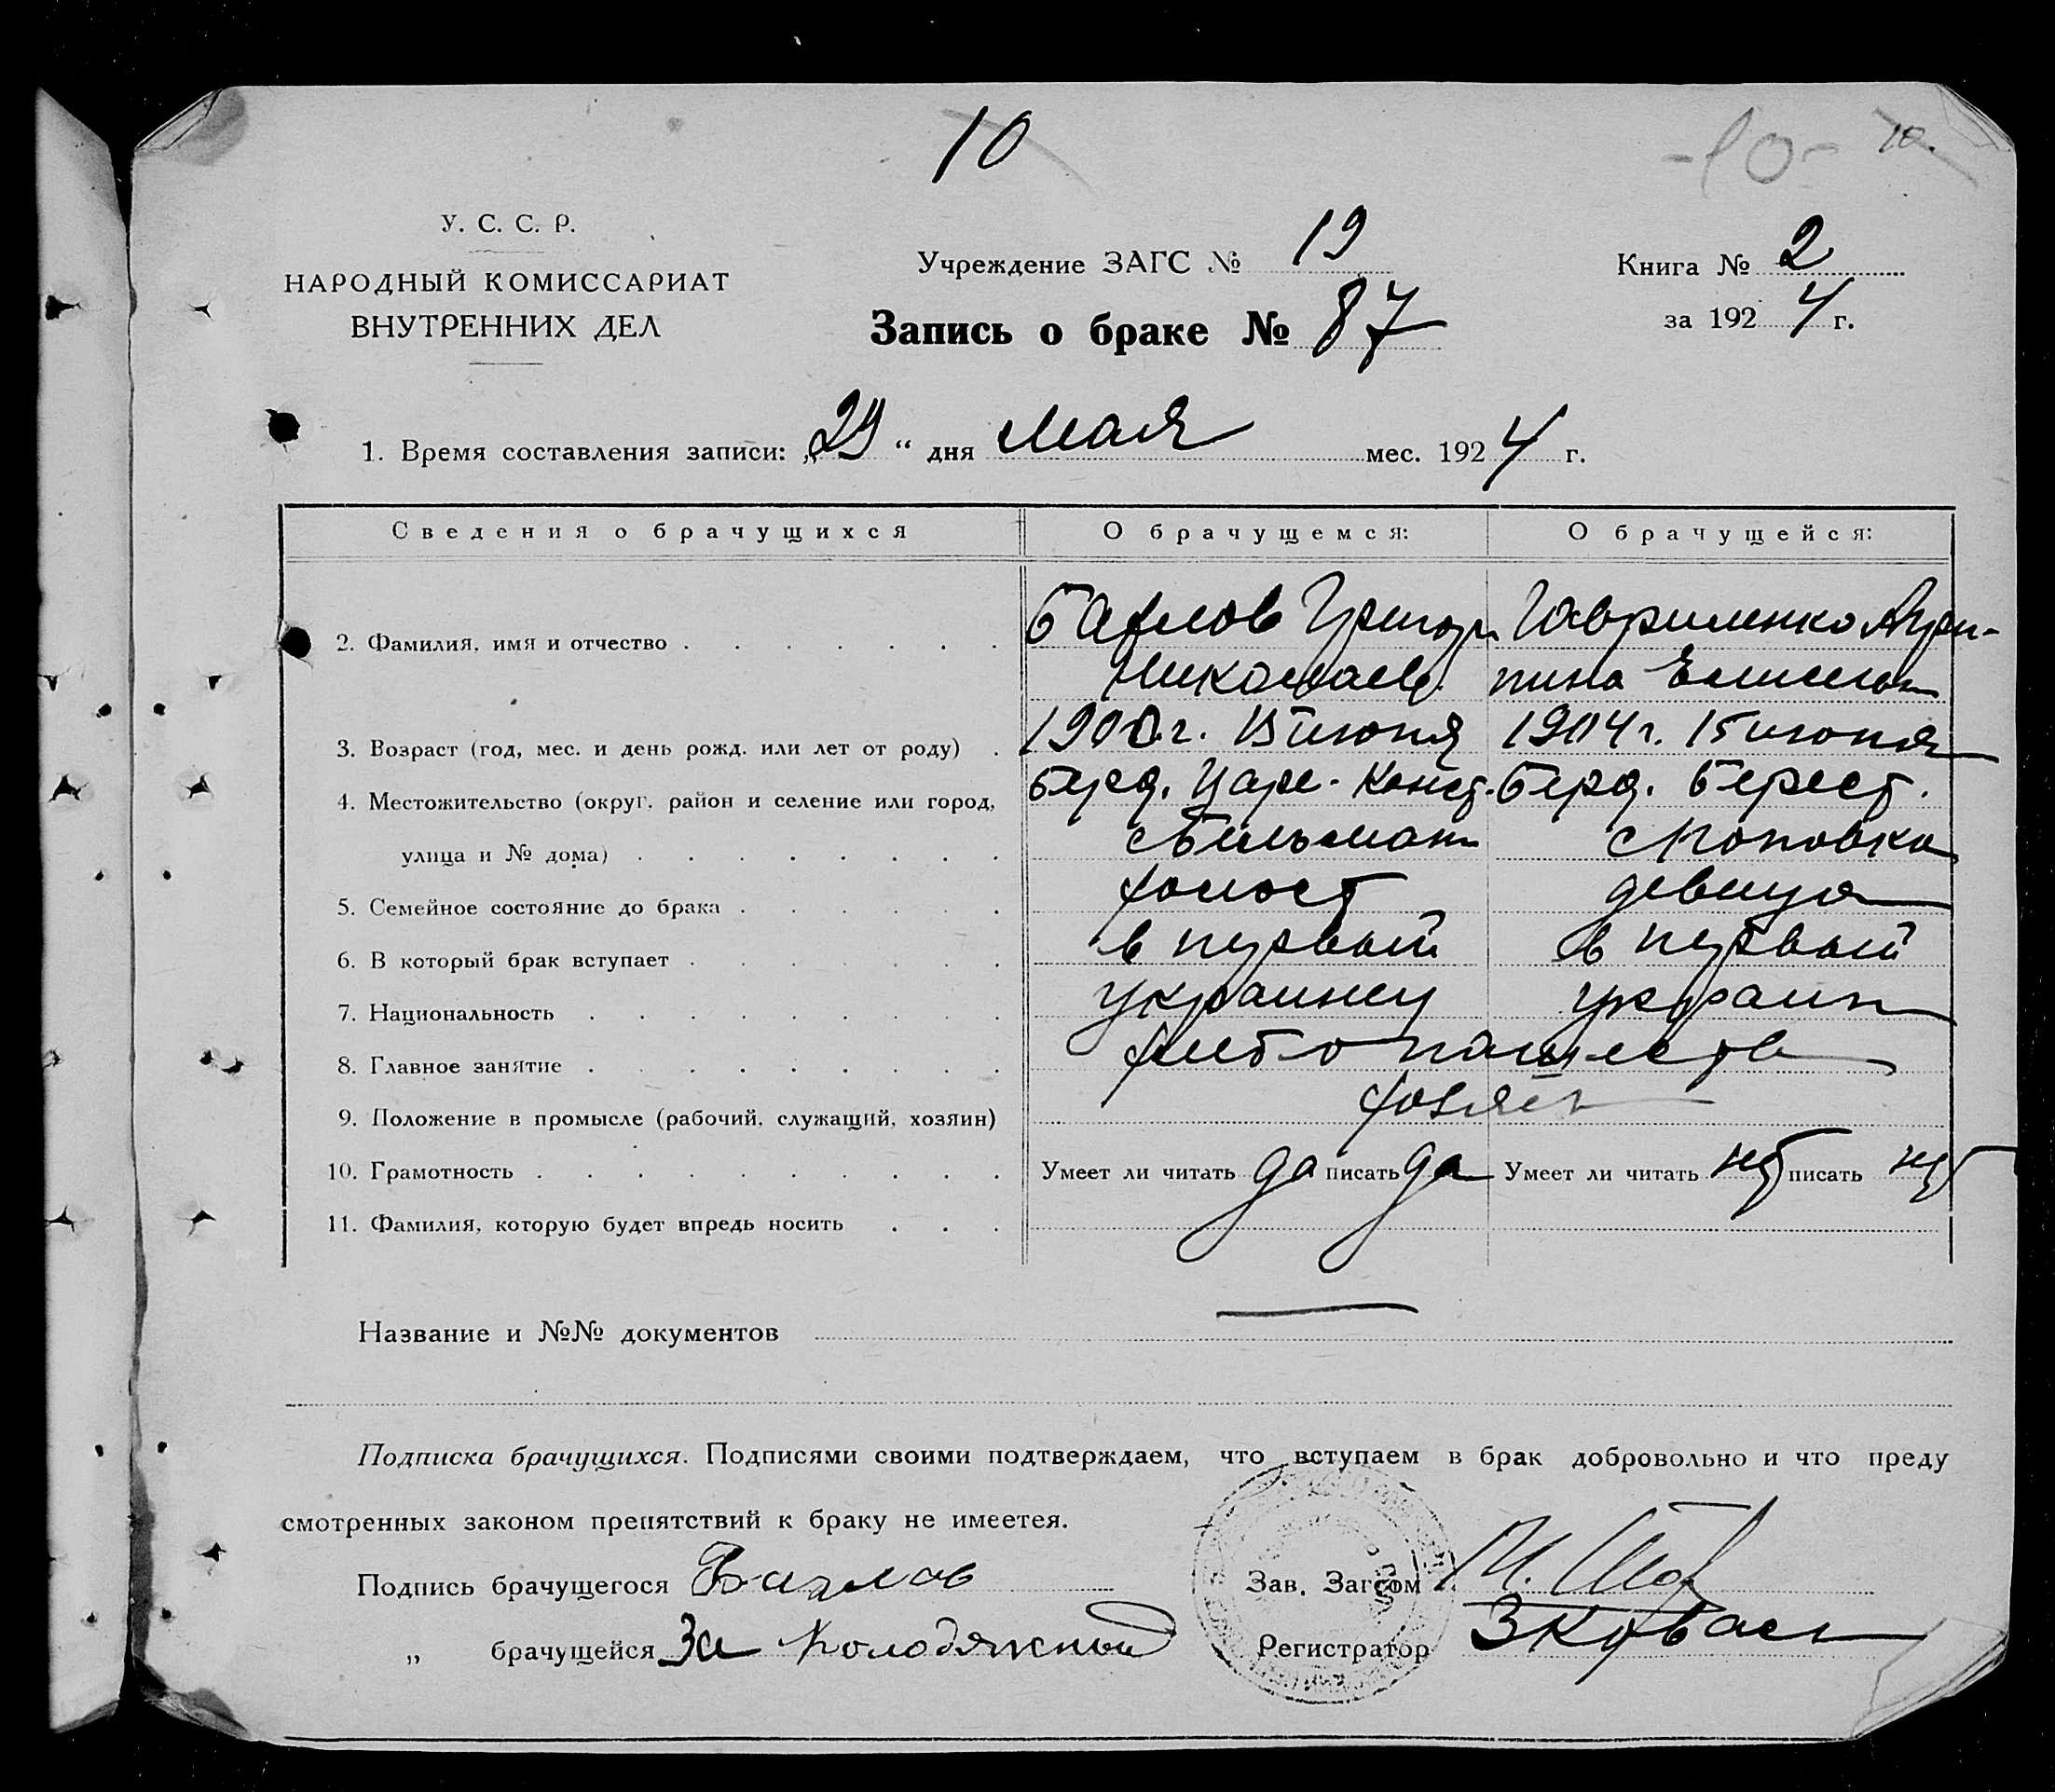 10
-10- 10.
У. С. С. Р.
НАРОДНЫЙ КОМИССАРИАТ
ВНУТРЕННИХ ДЕЛ
Учреждение ЗАГС № 19
Книга № 2
за 1924 г.
Запись о браке № 87
1. Время составления записи: „29“ дня Мая мес. 1924 г.
Сведения о брачущихся О брачущемся: О брачущейся:
2. Фамилия, имя и отчество Григори Гавриленко Агри-
Николаев. пина
3. Возраст (год, мес. и день рожд. или лет от роду) 1900 г. июня 1904 г. 15 июня
4. Местожительство (округ. район и селение или город, Берд. Царе-Конст. Берд. Берест.
улица и № дома) с Бильман с Поповка
5. Семейное состояние до брака холост девица
6. В который брак вступает в первый в первый
7. Национальность украинец украин
8. Главное занятие хлебопашество
9. Положение в промысле (рабочий, служащий, хозяин) хозяин
10. Грамотность Умеет ли читать да писать да Умеет ли читать нет писать нет
11. Фамилия, которую будет впредь носить
Название и №№ документов
Подписка брачущихся. Подписями своими подтверждаем, что вступаем в брак добровольно и что преду
смотренных законом препятствий к браку не имеетея.
Подпись брачущегося Зав. Загсом
„ брачущейся За Колодяжный Регистратор